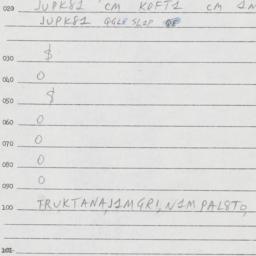 020 JUPK81 CM KOFT1 CM 1M
JUPK81 GGLE SL2P
030 $
040 O
050 $
060 O
070 O
080 O
090 O
100 TRUKTANA,J1MGR1,N1MPAL8TO,
101